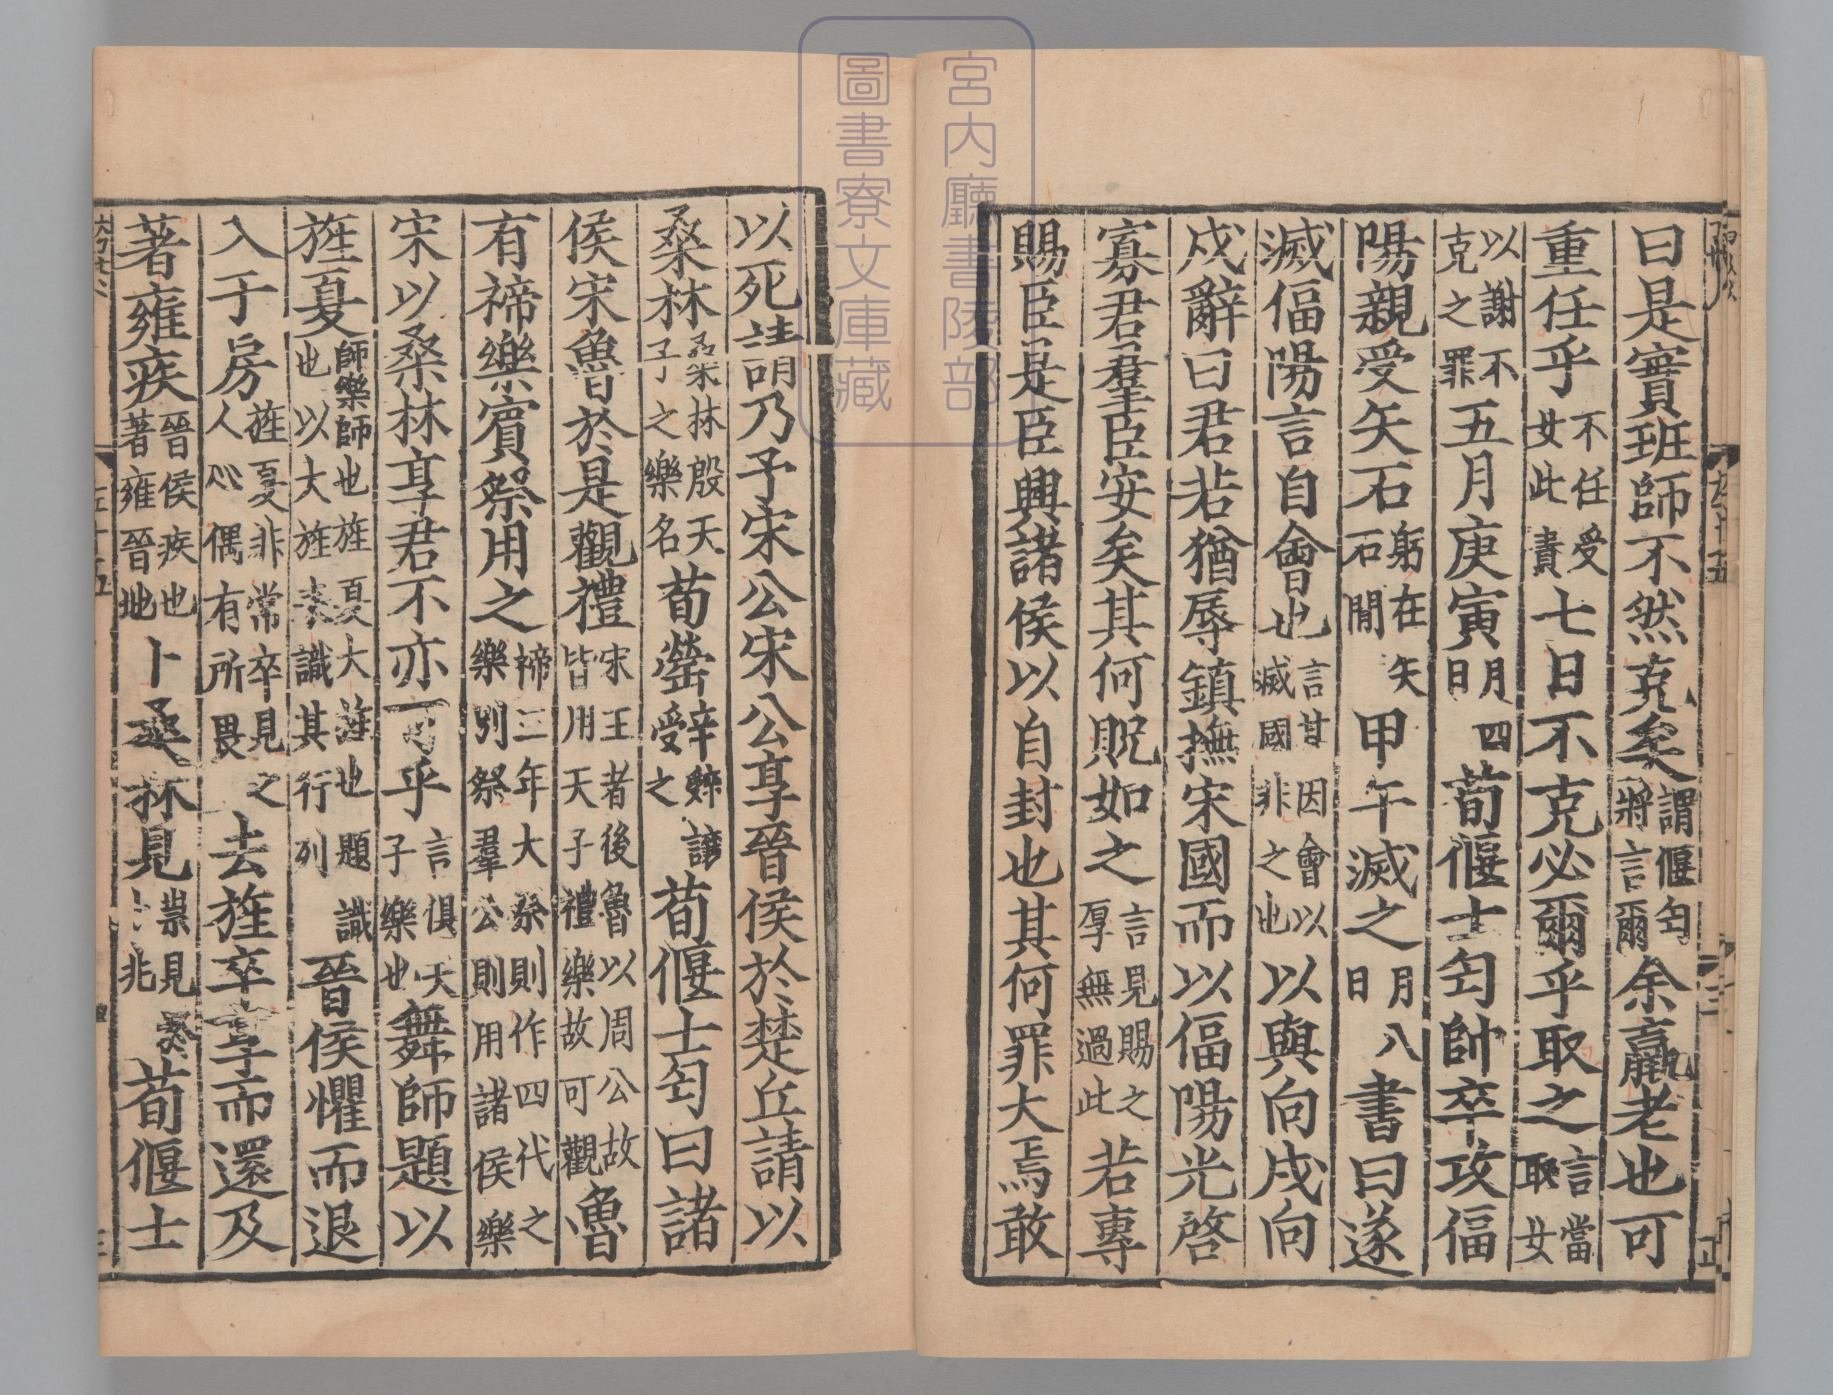 宮內廳書陵部
圖書寮文庫藏
曰是實班師不然克矣謂偃匄將言爾余羸老也可
重任乎不任受女此責七日不克必爾乎取之言當取女
以謝不克之罪五月庚寅月四日荀偃士匄帥卒攻偪
陽親受矢石躬在矢石間甲午滅之月八日書曰遂
滅偪陽言自會也言甘因會以滅國非之也以與向戌向
戌辭曰君若猶辱鎮撫宋國而以偪陽光啓
寡君羣臣安矣其何貺如之言見賜之厚無過此若專
賜臣是臣興諸侯以自封也其何罪大焉敢
以死請乃予宋公宋公享晉侯於楚丘請以
桑林桑林殷天子之樂名荀罃受之荀偃士匄曰諸
侯宋魯於是觀禮宋王者後魯以周公故皆用天子禮樂故可觀魯
有禘樂賓祭用之禘三年大祭則作四代之樂別祭羣公則用諸侯樂
宋以桑林享君不亦可乎言俱天子樂也舞師題以
旌夏師樂師也旌夏大旌也題識也以大旌表識其行列晉侯懼而退
入于房旌夏非常卒見之人心偶有所畏去旌卒享而還及
著雍疾晉侯疾也著雍晉地卜桑林見祟見兆荀偃士